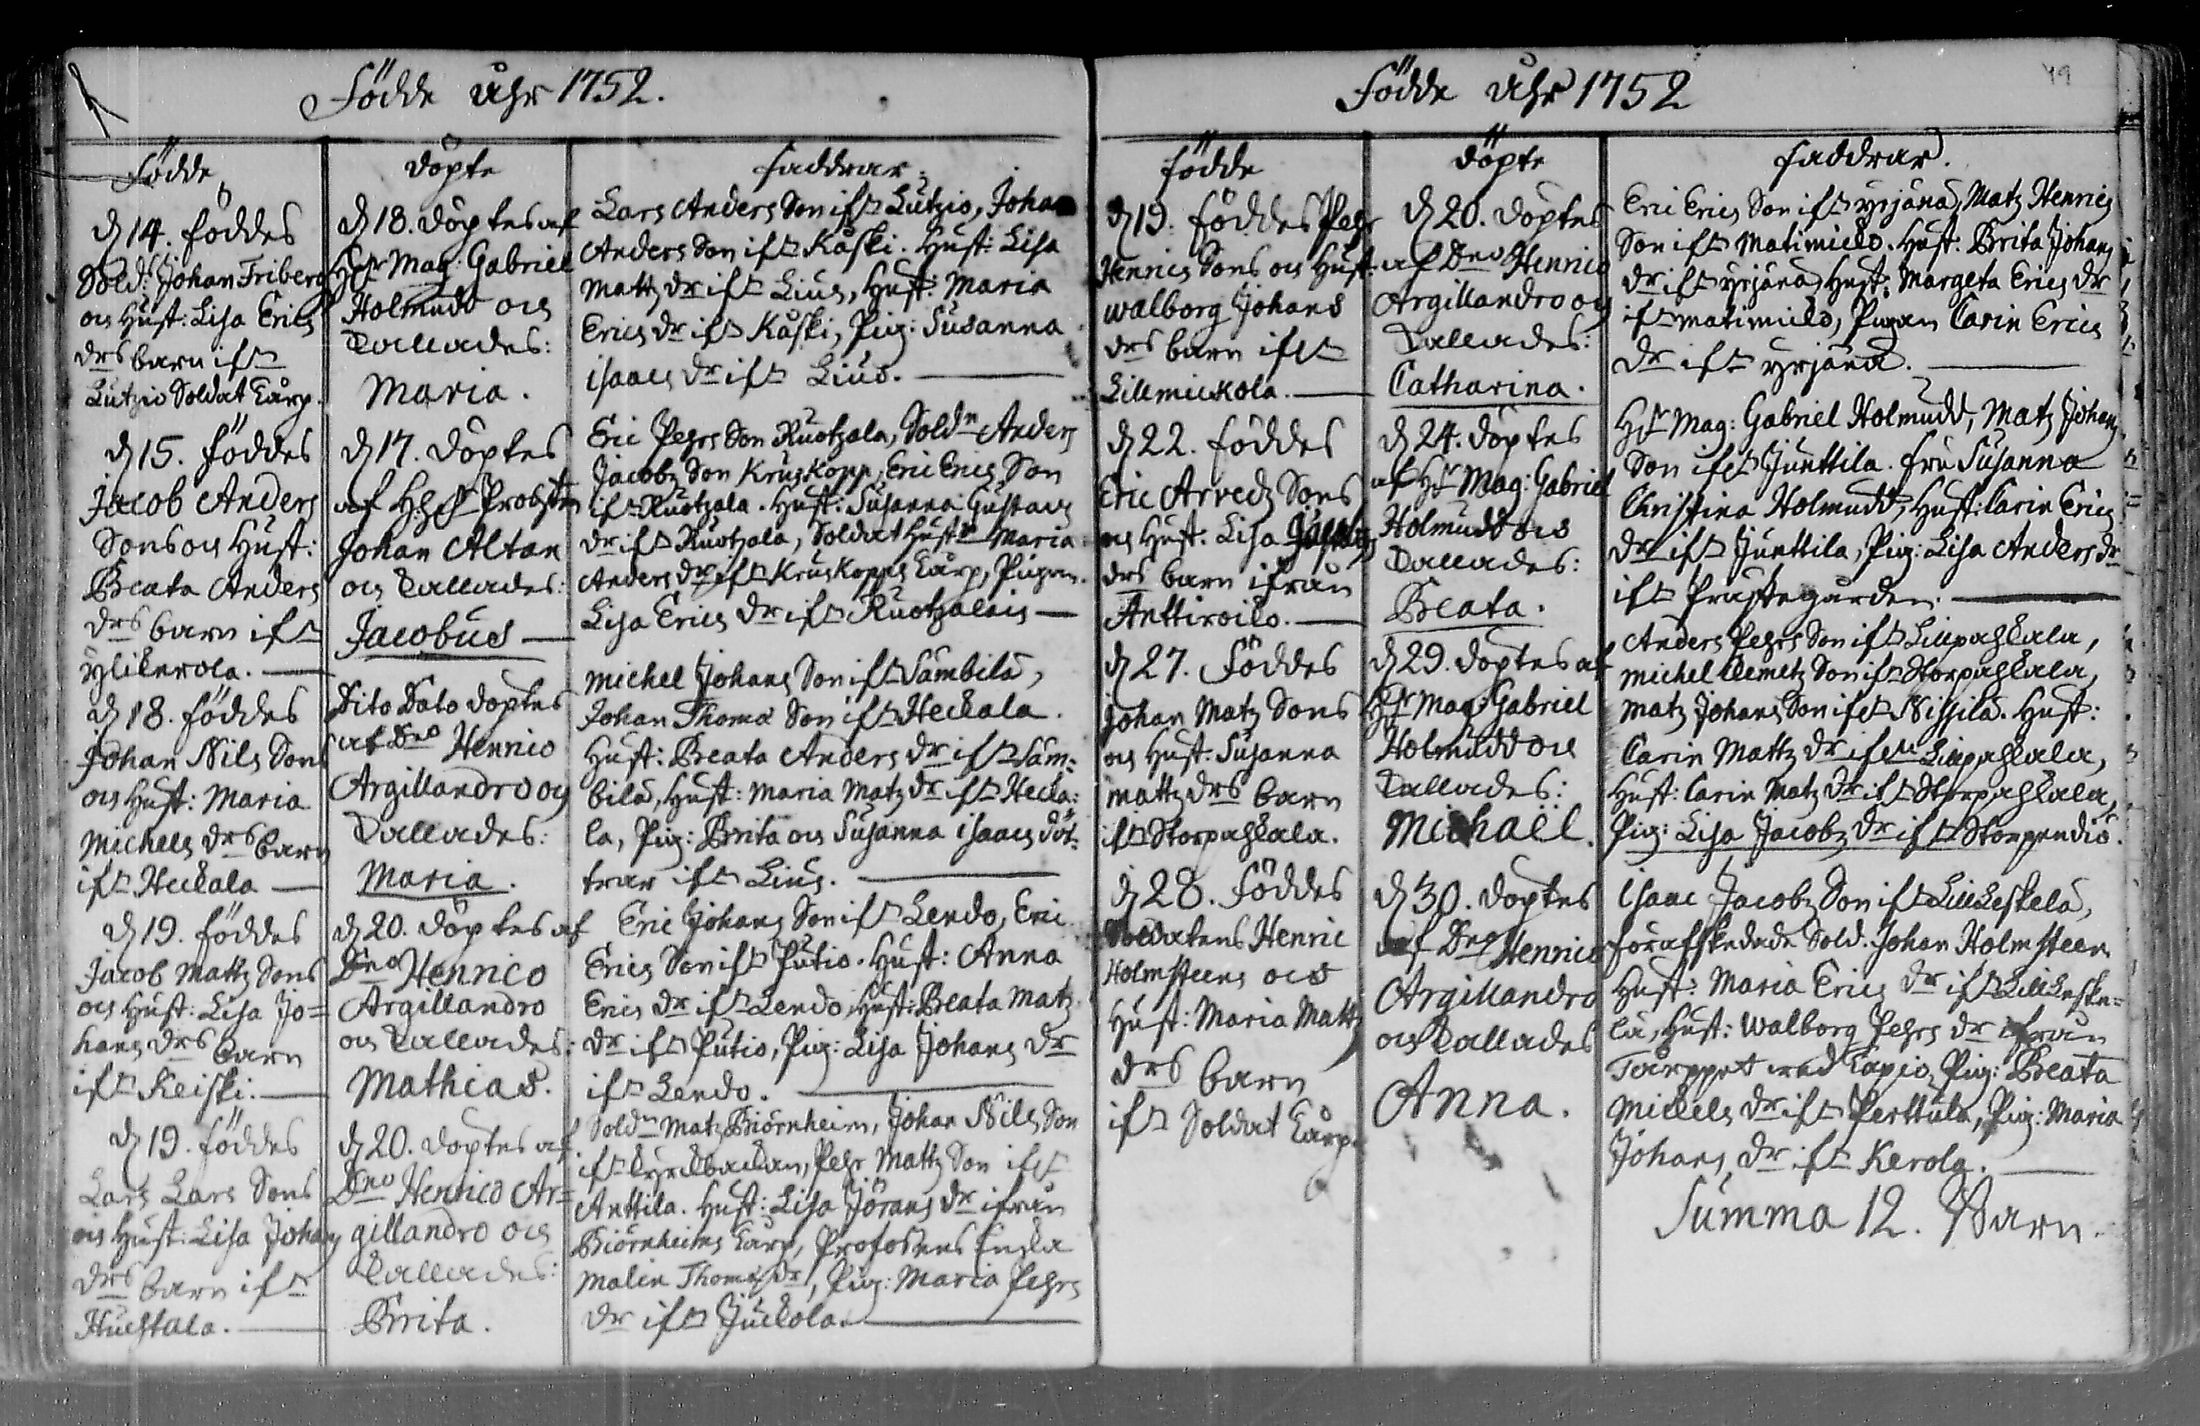 Födde Åhr 1752.
Födde
döpte
faddrar.
d 14. föddes
Sold: Johan Friberg
och Hust: Lisa Erics
drs barn ifr
Lutzio Soldat Törp.
d 18. döptes af
Hr Mag: Gabriel
Holmudd och
kallades:
Maria.
Lars Anders Son ifr Lutzio, Johan
Anders Son ifr Kåski. Hust: Lisa
Mattz dr ifr Lius, Hust: Maria
Erics dr ifr Kåski, Pig: Susanna
isaacs dr ifr Lius.
d 15. föddes
Jacob Anders
Sons och Hust:
Beata Anders
drs barn ifr
ylikerola.
d 17. döptes
af Probsten
Johan Altan
och kallades:
Jacobus
Eric Pehrs Son Ruotzala, Soldn Anders
Jacobz Son Kruskopp, Eric Erics Son
ifr Ruotzala. Hust: Susanna Gustavs
dr ifr Ruotzala, Soldat Hustr Maria
Anders dr ifr Kruskopps Törp, Pigan
Lisa Erics dr ifr Ruotzalais
d 18. föddes
Johan Nils Sons
och Hust: Maria
Michels drs barn
ifr Heikala
Dito Dato döptes
af Dno Henrico
Argillandro och
kallades:
Maria.
Michel Johans Son ifr Sambila,
Johan Thomæ Son ifr Heikala.
Hust: Beata Anders dr ifr Sam:
bila, Hust: Maria Matz dr ifr Heika:
la, Pig: Brita och Susanna isaacs döt:
trar ifr Lius.
d 19. föddes
Jacob Mattz Sons
och Hust: Lisa Jo=
hans drs barn
ifr Keiski.
d 20. döptes af
Dno Henrico
Argillandro
och kallades:
Mathias.
Eric Johans Son ifr Lendo, Eric
Erics Son ifr Putio. Hust: Anna
Erics dr ifr Lendo, Hust: Beata Matz
dr ifr Putio, Pig: Lisa Johans dr
ifr Lendo.
d 19. föddes
Lars Lars Sons
och Hust: Lisa Johans
drs barn ifr
Huhtala.
d 20. döptes af
Dno Henrico Ar=
gillandro och
kallades:
Brita.
Soldn Matz Biörnheim, Johan Nils Son
ifr kyrckbackan, Pehr Mattz Son ifr
Anttila. Hust: Lisa Jörans dr ifrån
Biörnheims Törp, Profosens Enka
Malin Thomæ dr, Pig: Maria Pehrs
dr ifr Juckola.
Födde Åhr 1752
49
födde
döpte
faddrar.
d 19. föddes Pehr
Henrics Sons och Hust:
Walborg Johans
drs barn ifr
Lillmickola.
d 20. döptes
af Dno Henrico
Argillandro och
kallades:
Catharina.
Eric Erics Son ifr yrjänä, Matz Henrics
Son ifr Matimickis. Hust: Brita Johans
dr ifr yrjänä, Hust: Margeta Erics dr
ifr Matimickis, Pigan Carin Erics
dr ifr yrjänä.
d 22. föddes
Eric Arvedz Sons
och Hust: Lisa
drs barn ifrån
Anttiroiko.
d 24. döptes
af Hr Mag: Gabriel
Holmudd och
kallades:
Beata.
Hr Mag: Gabriel Holmudd, Matz Johans
Son ifr Junttila. fru Susanna
Christina Holmudd, Hust: Carin Erics
dr ifr Junttila, Pig: Lisa Anders dr
ifr Prästegården.
d 27. Föddes
Johan Matz Sons
och Hust: Susanna
Mattz drs barn
ifr Storpahkala.
d 29. döptes af
Hr Mag: Gabriel
Holmudd och
kallades:
Michaël.
Anders Pehrs Son ifr Lillpahkala,
Michel Clemetz Son ifr Storpahkala,
Matz Johans Son ifr Nissilä. Hust:
Carin Mattz dr ifrn Lillpahkala,
Hust: Carin Matz dr ifr Storpahkala,
Pig: Lisa Jacobz dr ifr Storpendis.
d 28. Föddes
Soldatens Henric
Holmsteens och
Hust: Maria Mattz
drs barn
ifr Soldat Törp.
d 30. döptes
af Dno Henrico
Argillandro
och kallades
Anna.
Isaac Jacobz Son ifr Lillkeskela,
förafskedade Sold. Johan Holmsteen
Hust: Maria Erics dr ifr Lillkeske=
la, Hust: Walborg Pehrs dr ifrån
Törppet wed Kapio, Pig: Beata
Mickels dr ifr Perttula, Pig: Maria
Johans dr ifr Kerola.
Summa 12. Barn.